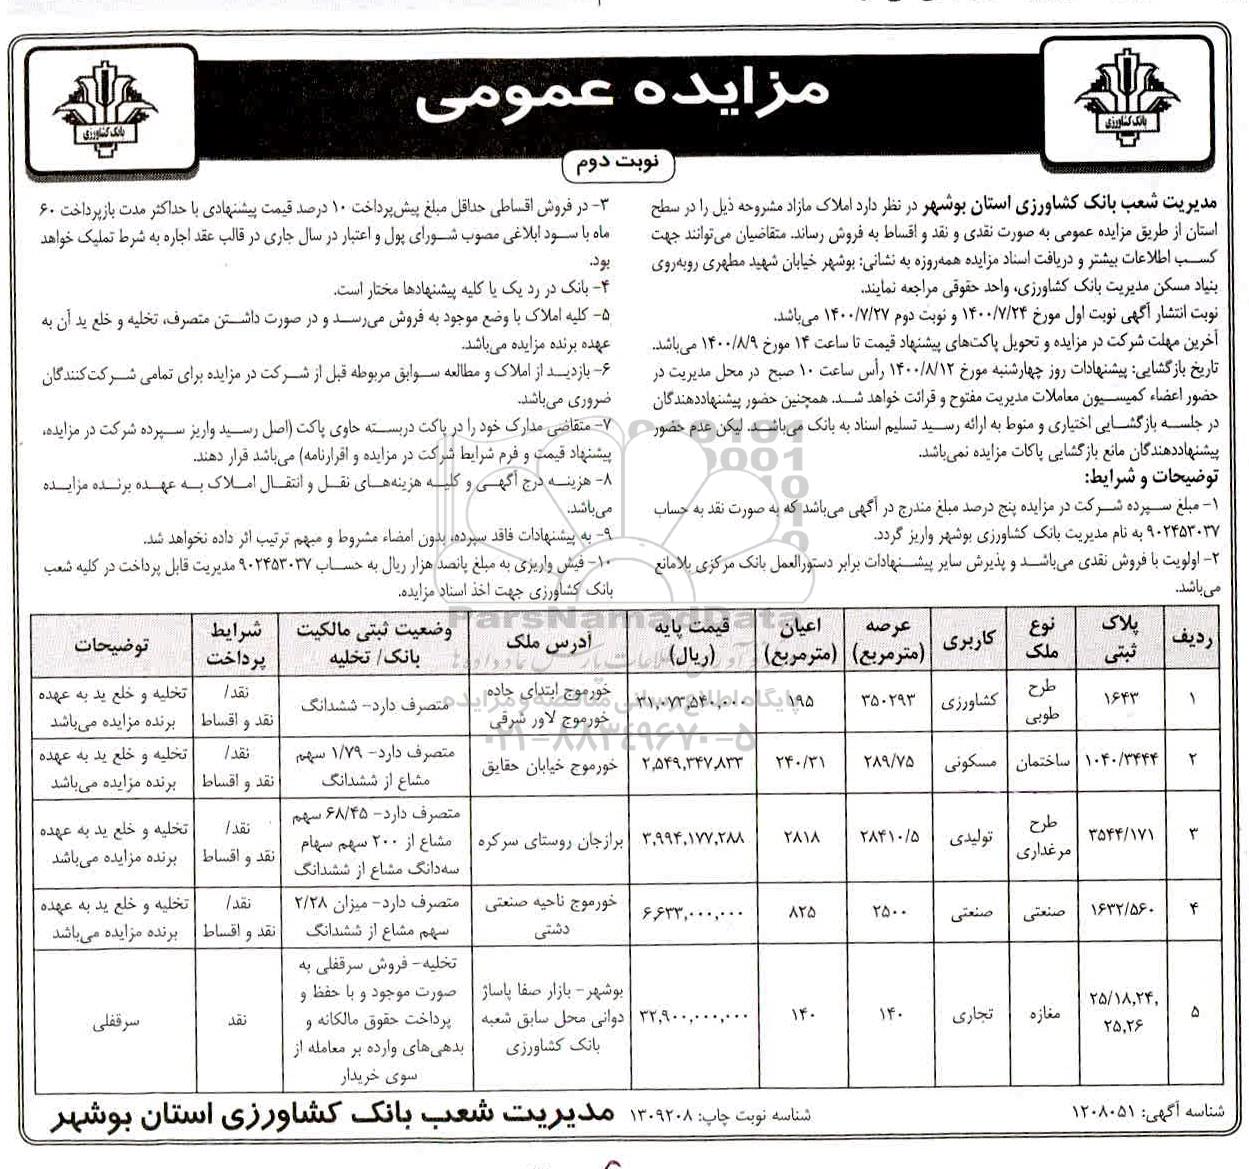 مزایده عمومی
بانک کشاورزی
بانک کشاورزی
نوبت دوم
مدیریت شعب بانک کشاورزی استان بوشهر در نظر دارد املاک مازاد مشروحه ذیل را در سطح
استان از طریق مزایده عمومی به صورت نقدی و نقد و اقساط به فروش رساند. متقاضیان می‌توانند جهت
کسب اطلاعات بیشتر و دریافت اسناد مزایده همه‌روزه به نشانی: بوشهر خیابان شهید مطهری روبه‌روی
بنیاد مسکن مدیریت بانک کشاورزی، واحد حقوقی مراجعه نمایند.
نوبت انتشار آگهی نوبت اول مورخ ۱۴۰۰/۷/۲۴ و نوبت دوم ۱۴۰۰/۷/۲۷ می‌باشد.
آخرین مهلت شرکت در مزایده و تحویل پاکت‌های پیشنهاد قیمت تا ساعت ۱۴ مورخ ۱۴۰۰/۸/۹ می‌باشد.
تاریخ بازگشایی: پیشنهادات روز چهارشنبه مورخ ۱۴۰۰/۸/۱۲ رأس ساعت ۱۰ صبح در محل مدیریت در
حضور اعضاء کمیسیون معاملات مدیریت مفتوح و قرائت خواهد شد. همچنین حضور پیشنهاددهندگان
در جلسه بازگشایی اختیاری و منوط به ارائه رسید تسلیم اسناد به بانک می‌باشد. لیکن عدم حضور
پیشنهاددهندگان مانع بازگشایی پاکات مزایده نمی‌باشد.
توضیحات و شرایط:
۱- مبلغ سپرده شرکت در مزایده پنج درصد مبلغ مندرج در آگهی می‌باشد که به صورت نقد به حساب
۹۰۲۴۵۳۰۳۷ به نام مدیریت بانک کشاورزی بوشهر واریز گردد.
۲- اولویت با فروش نقدی می‌باشد و پذیرش سایر پیشنهادات برابر دستورالعمل بانک مرکزی بلامانع
می‌باشد.
۳- در فروش اقساطی حداقل مبلغ پیش‌پرداخت ۱۰ درصد قیمت پیشنهادی با حداکثر مدت بازپرداخت ۶۰
ماه با سود ابلاغی مصوب شورای پول و اعتبار در سال جاری در قالب عقد اجاره به شرط تملیک خواهد
بود.
۴- بانک در رد یک یا کلیه پیشنهادها مختار است.
۵- کلیه املاک با وضع موجود به فروش می‌رسد و در صورت داشتن متصرف، تخلیه و خلع ید آن به
عهده برنده مزایده می‌باشد.
۶- بازدید از املاک و مطالعه سوابق مربوطه قبل از شرکت در مزایده برای تمامی شرکت‌کنندگان
ضروری می‌باشد.
۷- متقاضی مدارک خود را در پاکت دربسته حاوی پاکت (اصل رسید واریز سپرده شرکت در مزایده،
پیشنهاد قیمت و فرم شرایط شرکت در مزایده و اقرارنامه) می‌باشد قرار دهند.
۸- هزینه درج آگهی و کلیه هزینه‌های نقل و انتقال املاک به عهده برنده مزایده
می‌باشد.
۹- به پیشنهادات فاقد سپرده، بدون امضاء مشروط و مبهم ترتیب اثر داده نخواهد شد.
۱۰- فیش واریزی به مبلغ پانصد هزار ریال به حساب ۹۰۲۴۵۳۰۳۷ مدیریت قابل پرداخت در کلیه شعب
بانک کشاورزی جهت اخذ اسناد مزایده.
ParsNamadData
پایگاه اطلاع رسانی مناقصه و مزایده
۰۲۱-۸۸۳۴۹۶۷۰-۵
ردیف | پلاک ثبتی | نوع ملک | کاربری | عرصه (مترمربع) | اعیان (مترمربع) | قیمت پایه (ریال) | آدرس ملک | وضعیت ثبتی مالکیت بانک/ تخلیه | شرایط پرداخت | توضیحات
۱ | ۱۶۴۳ | طرح طوبی | کشاورزی | ۳۵۰۲۹۳ | ۱۹۵ | ۳۱,۰۷۳,۵۴۰,۰۰۰ | خورموج ابتدای جاده خورموج لاور شرقی | متصرف دارد- ششدانگ | نقد/ نقد و اقساط | تخلیه و خلع ید به عهده برنده مزایده می‌باشد
۲ | ۱۰۴۰/۳۴۴۴ | ساختمان | مسکونی | ۲۸۹/۷۵ | ۲۴۰/۳۱ | ۲,۵۴۹,۳۴۷,۸۳۳ | خورموج خیابان حقایق | متصرف دارد- ۱/۷۹ سهم مشاع از ششدانگ | نقد/ نقد و اقساط | تخلیه و خلع ید به عهده برنده مزایده می‌باشد
۳ | ۳۵۴۴/۱۷۱ | طرح مرغداری | تولیدی | ۲۸۴۱۰/۵ | ۲۸۱۸ | ۳,۹۹۴,۱۷۷,۲۸۸ | برازجان روستای سرکره | متصرف دارد- ۶۸/۴۵ سهم مشاع از ۲۰۰ سهم سهام سه‌دانگ مشاع از ششدانگ | نقد/ نقد و اقساط | تخلیه و خلع ید به عهده برنده مزایده می‌باشد
۴ | ۱۶۳۲/۵۶۰ | صنعتی | صنعتی | ۲۵۰۰ | ۸۲۵ | ۶,۶۳۳,۰۰۰,۰۰۰ | خورموج ناحیه صنعتی دشتی | متصرف دارد- میزان ۲/۲۸ سهم مشاع از ششدانگ | نقد/ نقد و اقساط | تخلیه و خلع ید به عهده برنده مزایده می‌باشد
۵ | ۲۵/۱۸,۲۴, ۲۵,۲۶ | مغازه | تجاری | ۱۴۰ | ۱۴۰ | ۳۲,۹۰۰,۰۰۰,۰۰۰ | بوشهر- بازار صفا پاساژ دوانی محل سابق شعبه بانک کشاورزی | تخلیه- فروش سرقفلی به صورت موجود و با حفظ و پرداخت حقوق مالکانه و بدهی‌های وارده بر معامله از سوی خریدار | نقد | سرقفلی
شناسه آگهی: ۱۲۰۸۰۵۱
شناسه نوبت چاپ: ۱۳۰۹۲۰۸
مدیریت شعب بانک کشاورزی استان بوشهر